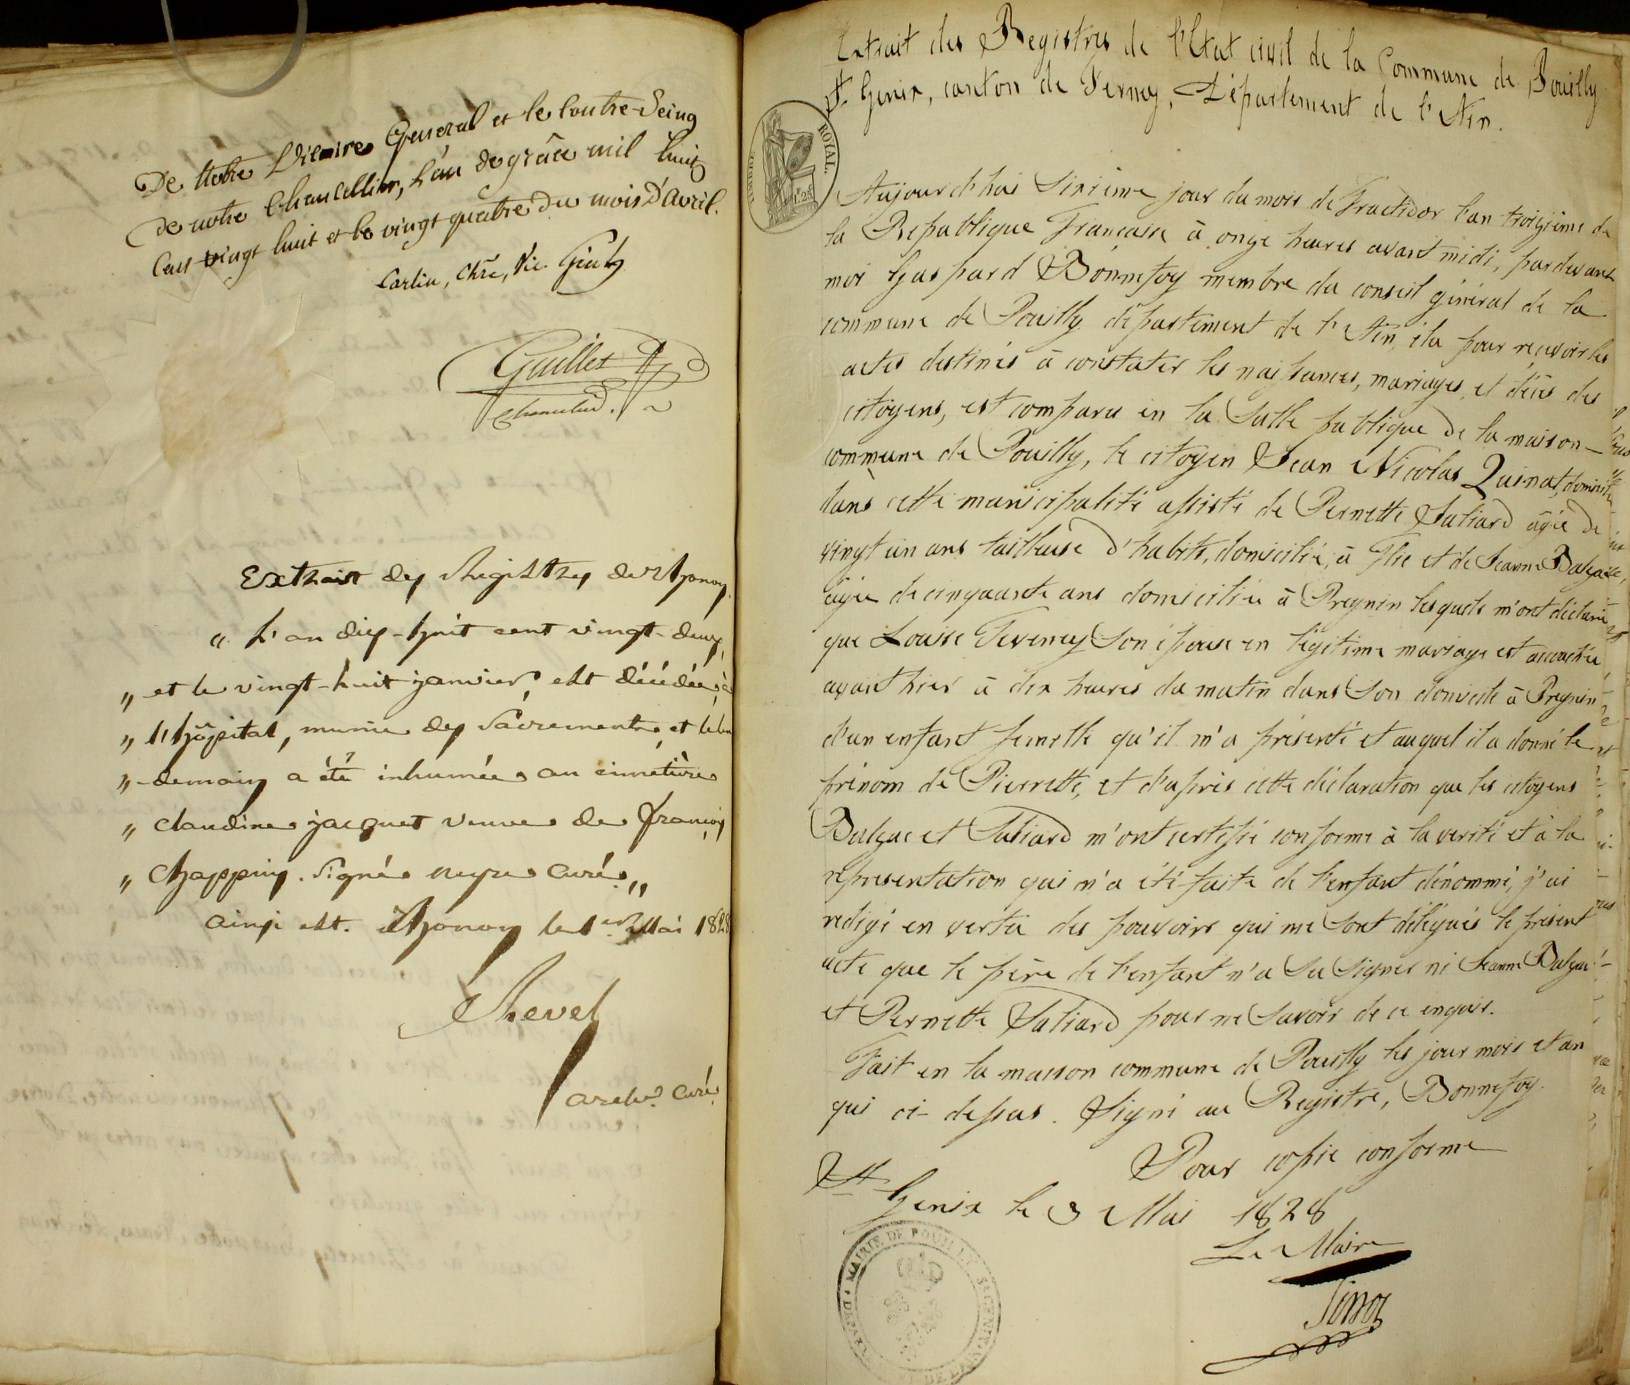 De Notre Vicaire General et le Contre-Seing
De notre Chancellier, l'an de grâce mil huit
cent vingt huit et le vingt quatre du mois d'avril.
Chne, Vic. Génl
Gaillet
Chancelier.
Extrait des Registres de Thonon
" L'an dix-huit cent vingt-deux,
" et le vingt-huit janvier, est décédée à
" l'hôpital, munie des Sacrements, et le len
" demain a été inhumée au cimetière
" Claudine jacquet veuve de françois
" Chappuis. Signé neyre Curé. "
ainsi est. Thonon le 1er Mai 1828
archip. curé
Extrait des Registres de l'Etat civil de la Commune de Pouilly
St. Genix, canton de Ferney, Département de l'Ain.
TIMBRE ROYAL
Aujourd'hui Sixième jour du mois de Fructidor l'an troisième de
la République Française à onze heures avant midi, pardevant
moi Gaspard Bonnefoy membre du conseil général de la
commune de Pouilly département de l'Ain élu pour recevoir les
actes destinés à constater les naissances, mariages, et décès des
citoyens, est comparu en la Salle publique de la maison
commune de Pouilly, le citoyen Jean Nicolas Quinat, domicilié
dans cette municipalité assisté de Pernette Saliard âgée de
vingt un ans tailleuse d'habits, domiciliée à Flie et de Jeanne Balzac,
âgée de cinquante ans domiciliée à Pregnin lesquels m'ont déclaré
que Louise Teveney Son épouse en légitime mariage est accouchée
avant hier à dix heures du matin dans Son domicile à Pregnin
d'un enfant femelle qu'il m'a présenté et auquel il a donné le
prénom de Pierrette, et d'après cette déclaration que les citoyens
Balzac et Saliard m'ont certifié conforme à la verité et à la
représentation qui m'a été faite de l'enfant dénommé, j'ai
redigé en vertu des pouvoirs qui me Sont délégués le présent
acte que le père de l'enfant n'a Su Signer ni Jeanne Balzac
et Pernette Saliard pour ne Savoir de ce enquis.
Fait en la maison commune de Pouilly les jour mois et an
que ci-dessus. Signé au Registre, Bonnefoy.
Pour copie conforme
St. Genix le 3 Mai 1828
Le Maire
MAIRIE DE POUILLY St GENIX